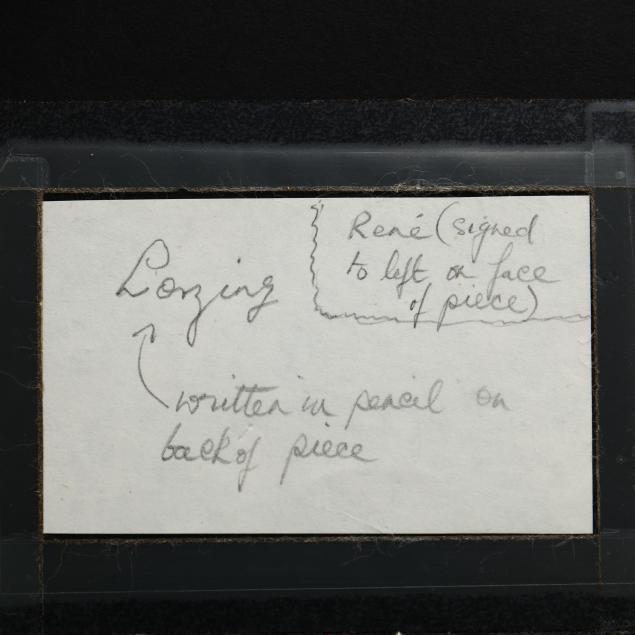 René (signed
to left on face
of piece)
Lorzing
written in pencil on
back of piece